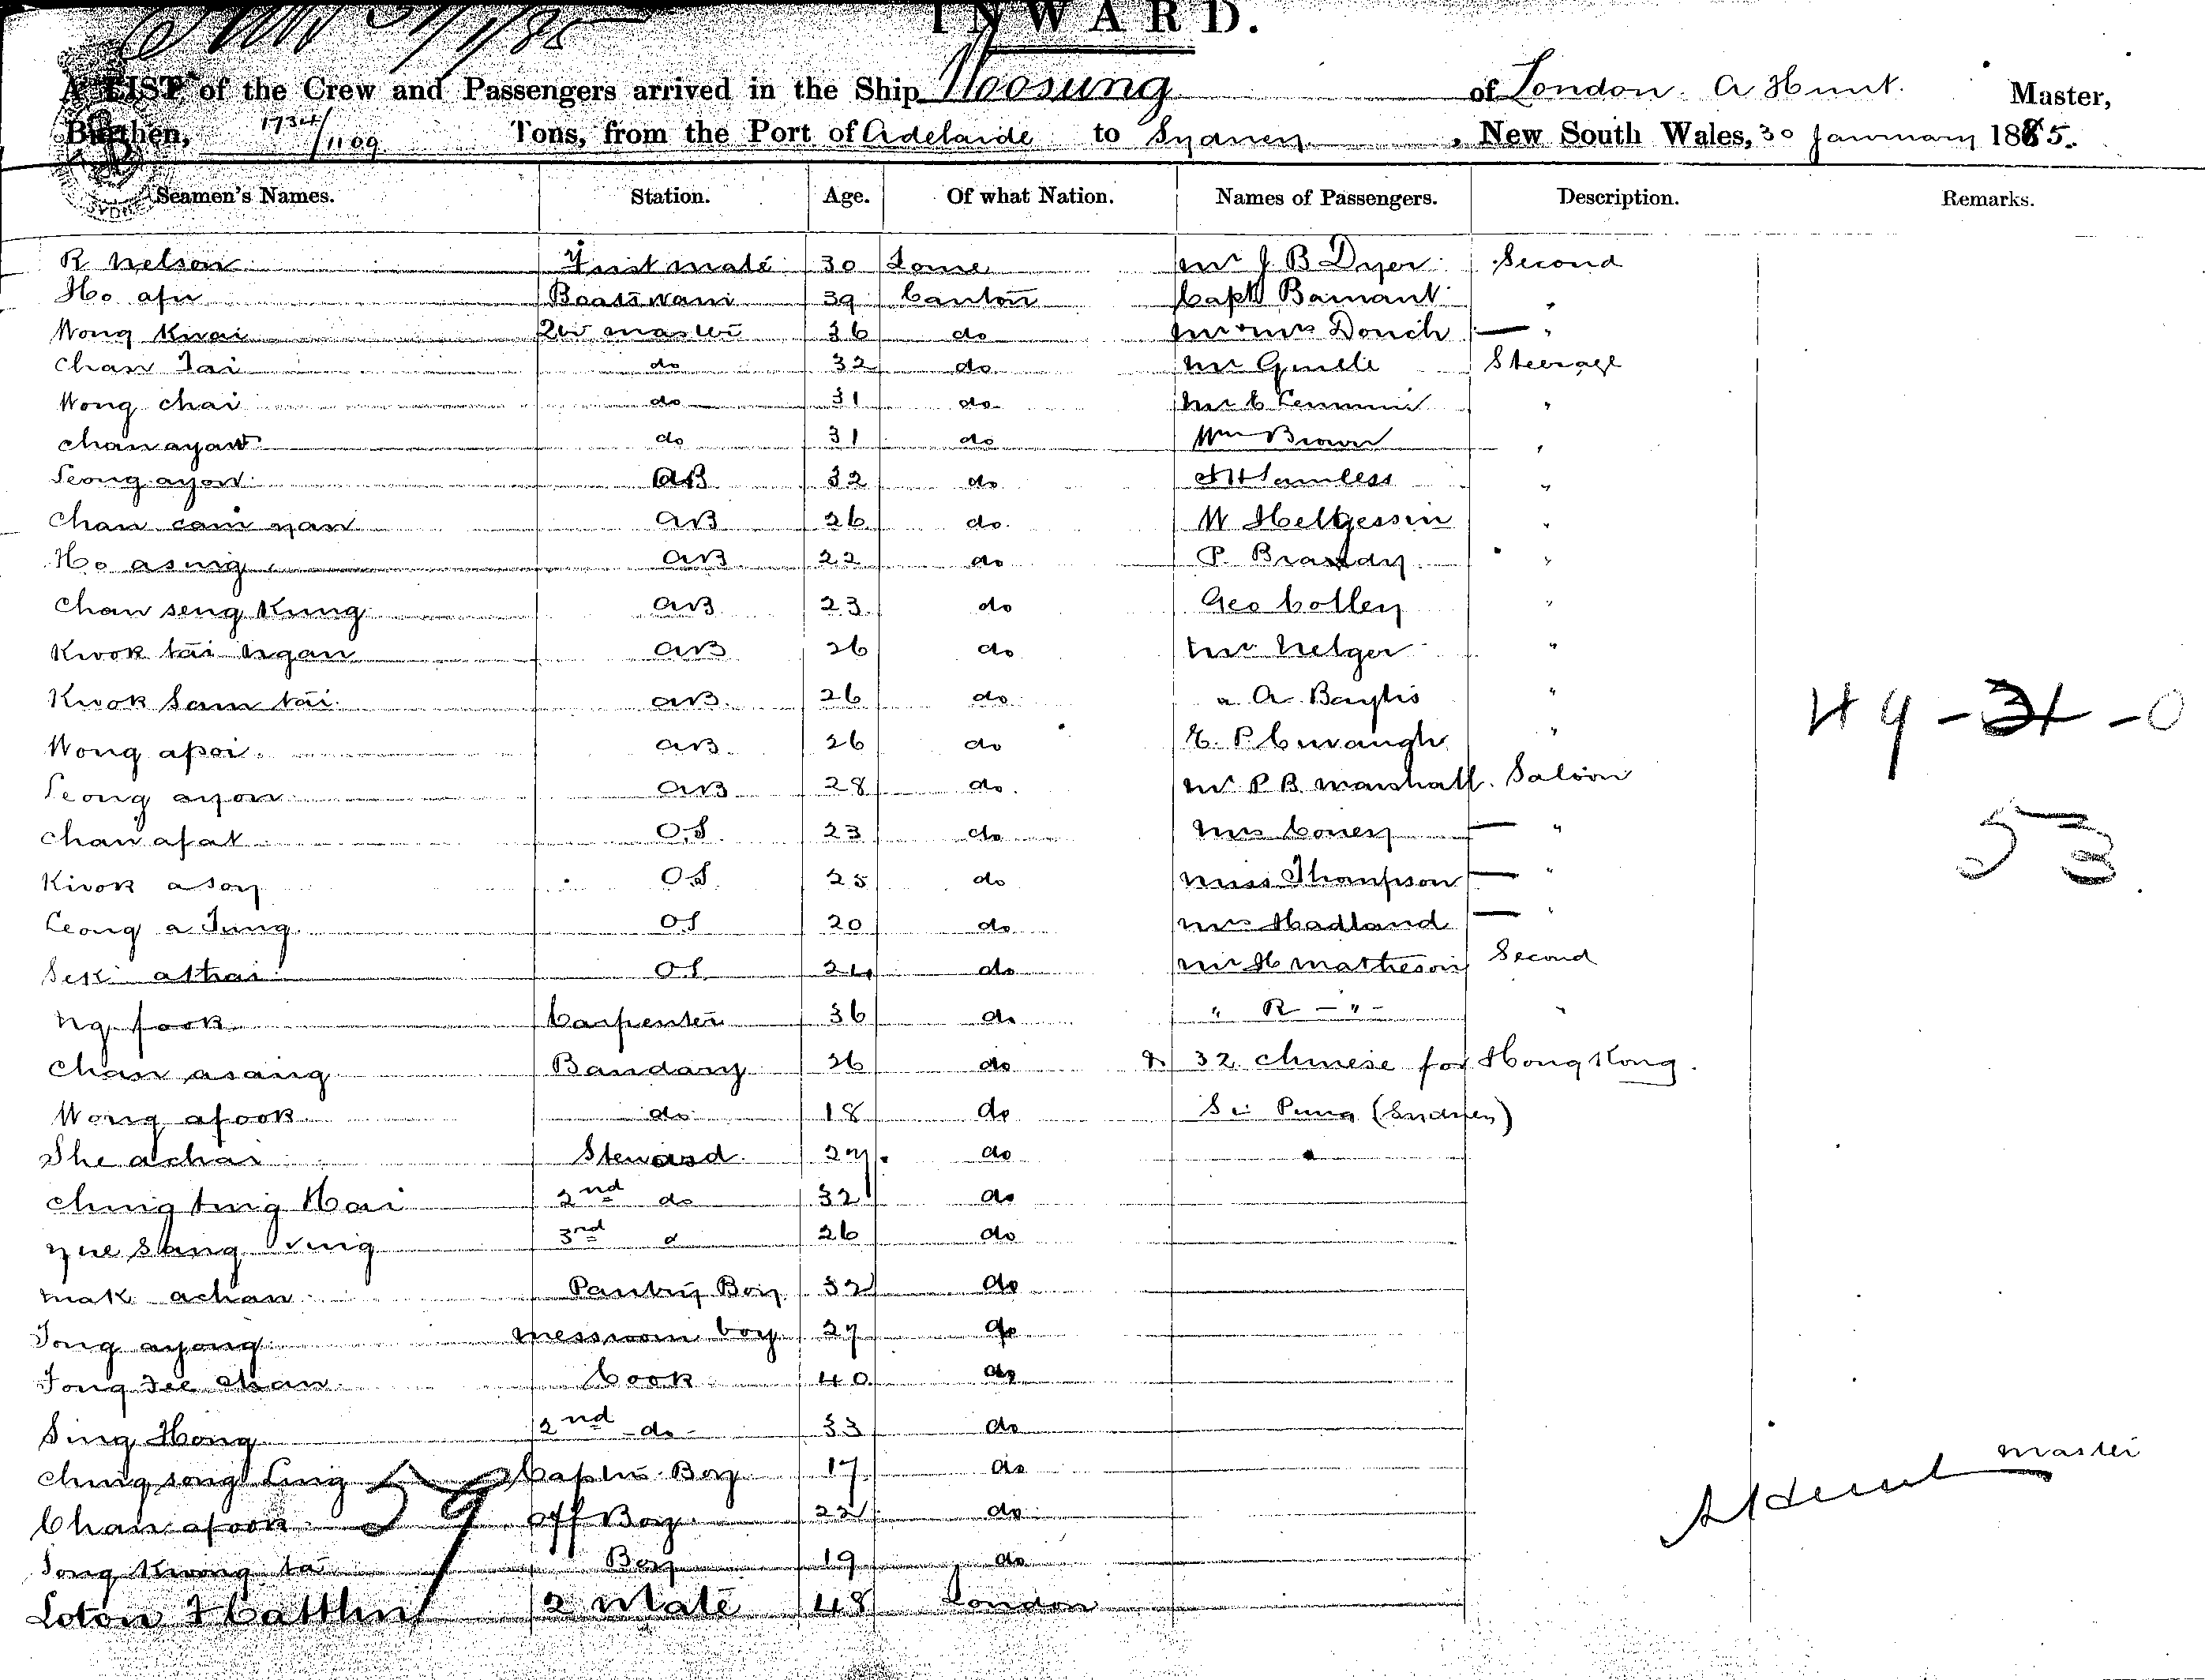 INWARD.
A LIST of the Crew and Passengers arrived in the Ship Woosung of London. A Hunt. Master,
Burthen, 1734/1109 Tons, from the Port of Adelaide to Sydney, New South Wales, 30 January 1885.
Seamen's Names. Station. Age. Of what Nation. Names of Passengers. Description. Remarks.
R Nelson First mate 30 Mr J B Dyer Second
Ho afu Boatswain 39 Canton Capt "
Wong Kwai Qr master 36 do Mr & Mrs Douch — "
Chan Tai do 32 do Mr Steerage
Wong chai do 31 do Mr C "
Chan ayau do 31 do Wm Brown "
Leong ayow AB 32 do "
Chan cam yan AB 26 do. W Helgessin "
Ho asing AB 22 do P. Brandy "
Chan seng Kung AB 23 do Geo Colley "
Kwok tai ngan AB 26 do Mr Nelger "
Kwok Sam tai AB 26 do " A Baylis "
Wong apoi AB 26 do E. P. "
Leong ayon AB 28 do Mr P B Marshall. Saloon
Chan afat O.S. 23 do Mrs Coney — "
Kwok asoy O.S. 25 do Miss Thompson — "
Leong a Tung OS 20 do Mrs Hadland — "
athai OS 24 do Mr H Matheson Second
Ng fook Carpenter 36 do " R — " — "
Chan asang Bandary 26 do & 32 Chinese for Hong Kong.
Wong afook do 18 do (Sydney)
She achai Steward 27 do
Ching tung Hai 2nd do 32 do
Yue Sang 3rd d 26 do
Mak achan Pantry Boy 32 do
Tong ayong messroom boy 27 do
Tong Tee Chan Cook 40 do
Sing Hong 2nd do 33 do
Ching song Ling Captns Boy 17 do
Chan afook Off Boy 22 do
Tong Kwong tai Boy 19 do
Loton 2 Mate 48 London
59
53
A Hunt master